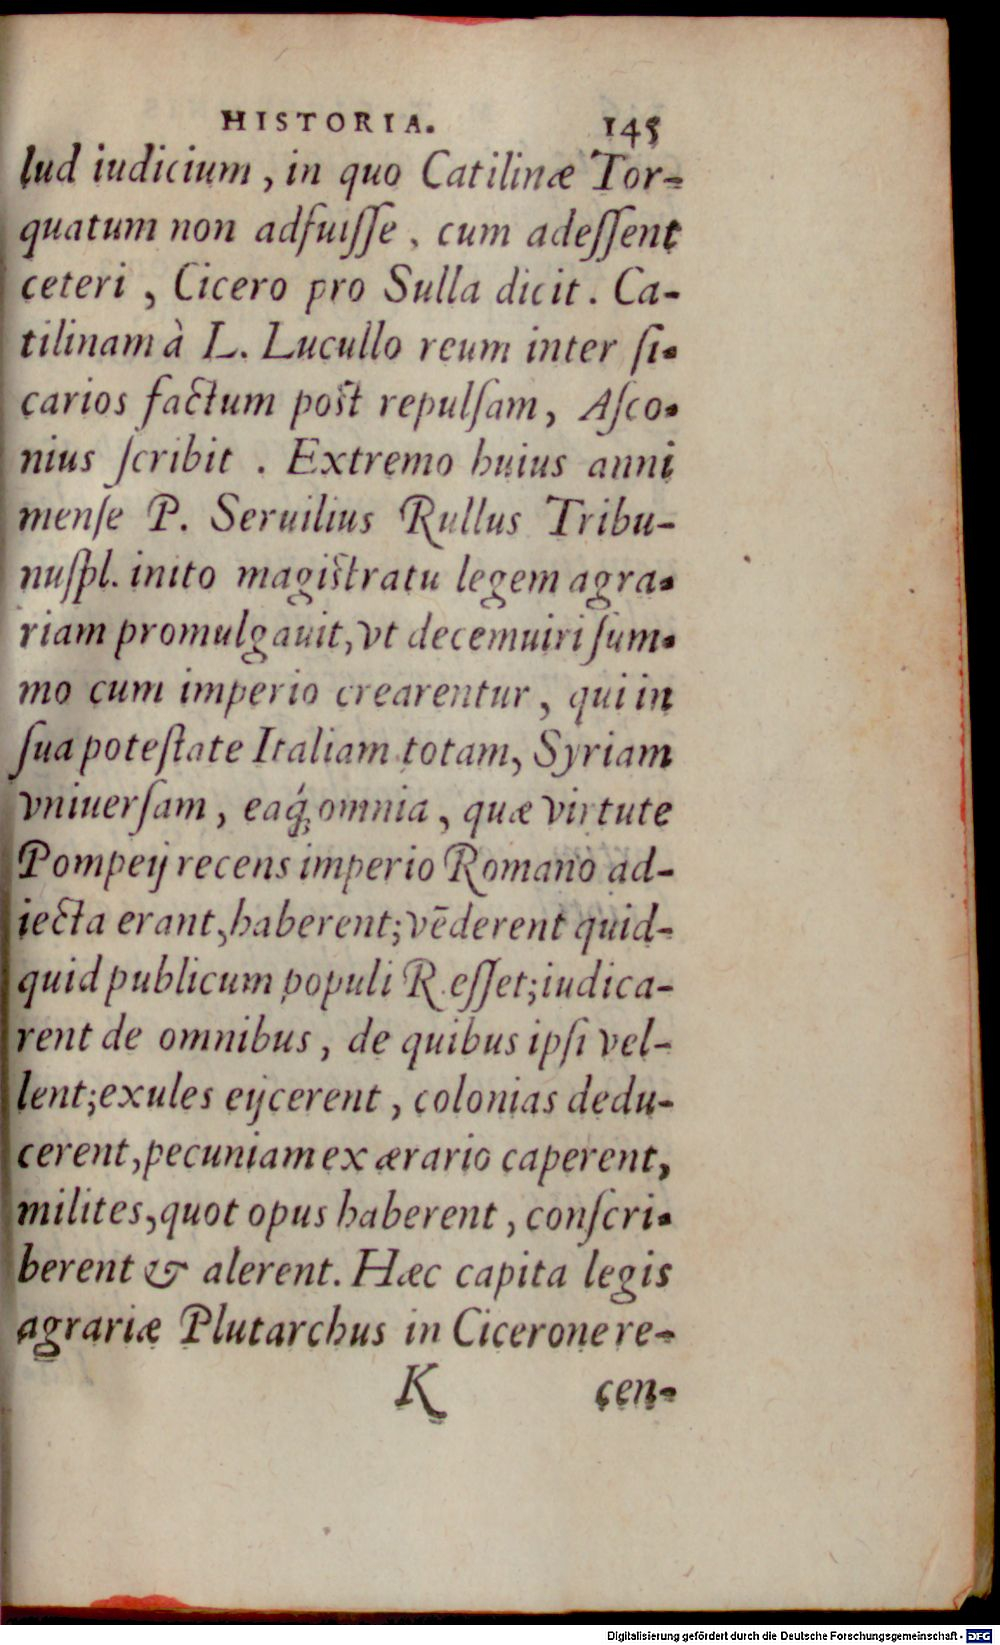 HISTORIA. 145
lud iudicium, in quo Catilinæ Tor-
quatum non adfuiſſe, cum adeſſent
ceteri, Cicero pro Sulla dicit. Ca-
tilinam à L. Lucullo reum inter ſi-
carios factum poſt repulſam, Aſco-
nius ſcribit. Extremo huius anni
menſe P. Seruilius Rullus Tribu-
nuſpl. inito magiſtratu legem agra-
riam promulgauit, vt decemuiri ſum-
mo cum imperio crearentur, qui in
ſua poteſtate Italiam totam, Syriam
vniuerſam, eaq́; omnia, quæ virtute
Pompeij recens imperio Romano ad-
iecta erant, haberent; vēderent quid-
quid publicum populi R. eſſet; iudica-
rent de omnibus, de quibus ipſi vel-
lent; exules eijcerent, colonias dedu-
cerent, pecuniam ex ærario caperent,
milites, quot opus haberent, conſcri-
berent & alerent. Hæc capita legis
agrariæ Plutarchus in Cicerone re-
K cen-
Digitalisierung gefördert durch die Deutsche Forschungsgemeinschaft - DFG